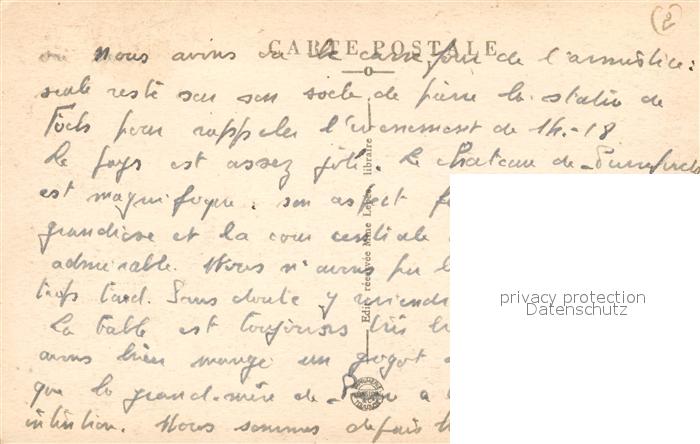 2
CARTE POSTALE
Nous avions vu le carrefour de l'armistice :
seule reste sur son socle de pierre la statue de
Foch pour rappeler l'évènement de 14-18
Le pays est assez joli. Le chateau de Pierrefonds
est magnifique : son aspect
grandiose et la cour centrale
admirable. Nous n'avons pu
trop tard. Sans doute y
La table est toujours très
avons bien mangé un gigot
que la grand-mère de
intention. Nous sommes depuis
Edit. réservée Mme Lebée, libraire
privacy protection
Datenschutz